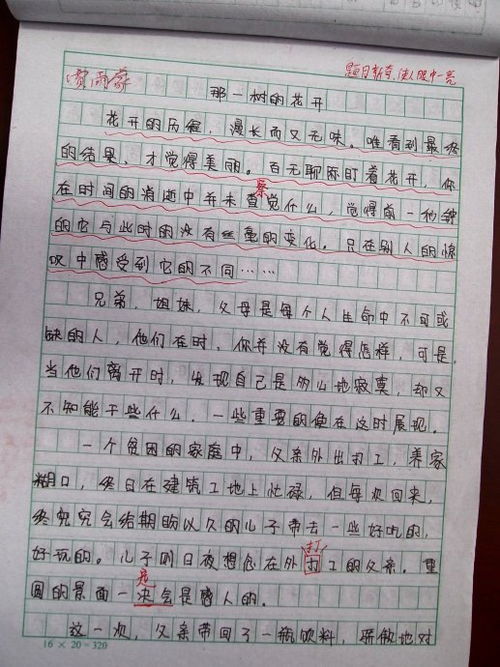 题目新奇,使人眼中一亮
贾雨蒙
那一树的花开
花开的历程,漫长而又无味。唯看到最终
的结果,才觉得美丽。百无聊际盯着花开,你
察
在时间的消逝中并未查觉什么,觉得前一秒钟
的它与此时的没有丝毫的变化。只在别人的惊
叹中感受到它的不同……
兄弟,姐妹,父母是每个人生命中不可或
缺的人,他们在时,你并没有觉得怎样,可是,
当他们离开时,发现自己是多么地寂寞,却又
不知能干些什么。一些重要的便在这时展现。
一个贫困的家庭中,父亲外出打工,养家
糊口,终日在建筑工地上忙碌,但每次回来,
终究会给期盼以久的儿子带去一些好吃的,
打
好玩的。儿子则日夜想念在外打工的父亲。重
总
圆的景面一决会是感人的。
这一次,父亲带回了一瓶饮料,骄傲地对
16 × 20 = 320